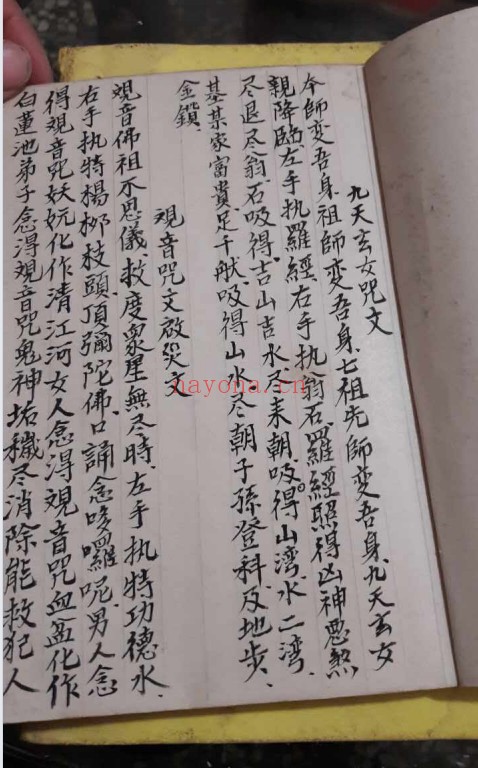 九天玄女咒文
本师变吾身.祖师变吾身.七祖先师变吾身.九天玄女
親降臨.左手执羅經.右手执翁石.羅經照得凶神惡煞
尽退尽.翁石吸得.吉山吉水尽来朝.吸得山湾.水二湾.
基某家富貴足千猷.吸得山水尽朝子孫登科.及地步、
金鎖.
觀音咒文啟災文
觀音佛祖不思儀.救度眾星無尽時.左手执特功德水、
右手执特楊柳枝.頭頂彌陀佛.口誦念哆囉呢.男人念
得觀音咒妖妩化作清江河女人念得觀音咒血盆化作
白蓮池弟子念得觀音咒鬼神垢穢尽消除能救犯人
nayona.cn